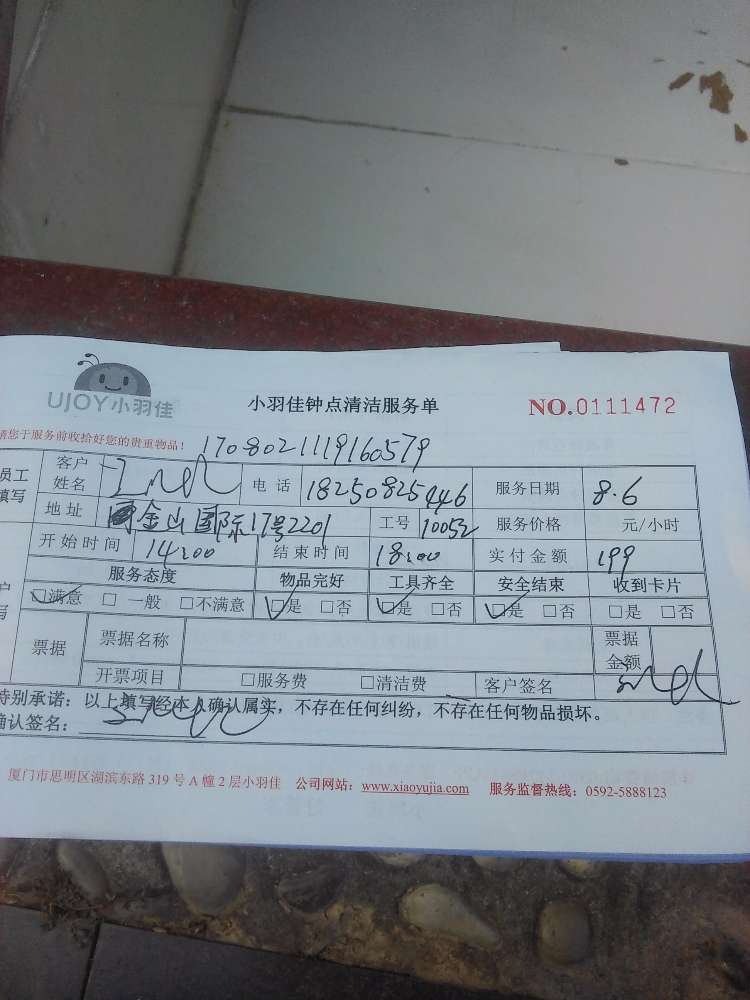 UJOY小羽佳
小羽佳钟点清洁服务单
NO.0111472
请您于服务前收拾好您的贵重物品!
1708021119160579
员工填写
客户姓名
电话 18250825446 服务日期 8.6
地址 金山国际17号2201 工号 10052 服务价格 元/小时
开始时间 14:00 结束时间 18:00 实付金额 199
服务态度 物品完好 工具齐全 安全结束 收到卡片
☑满意 □一般 □不满意 ☑是 □否 ☑是 □否 ☑是 □否 □是 □否
票据 票据名称 票据金额
开票项目 □服务费 □清洁费 客户签名
特别承诺:以上填写经本人确认属实,不存在任何纠纷,不存在任何物品损坏。
确认签名:
厦门市思明区湖滨东路 319 号 A 幢 2 层小羽佳 公司网站:www.xiaoyujia.com 服务监督热线:0592-5888123